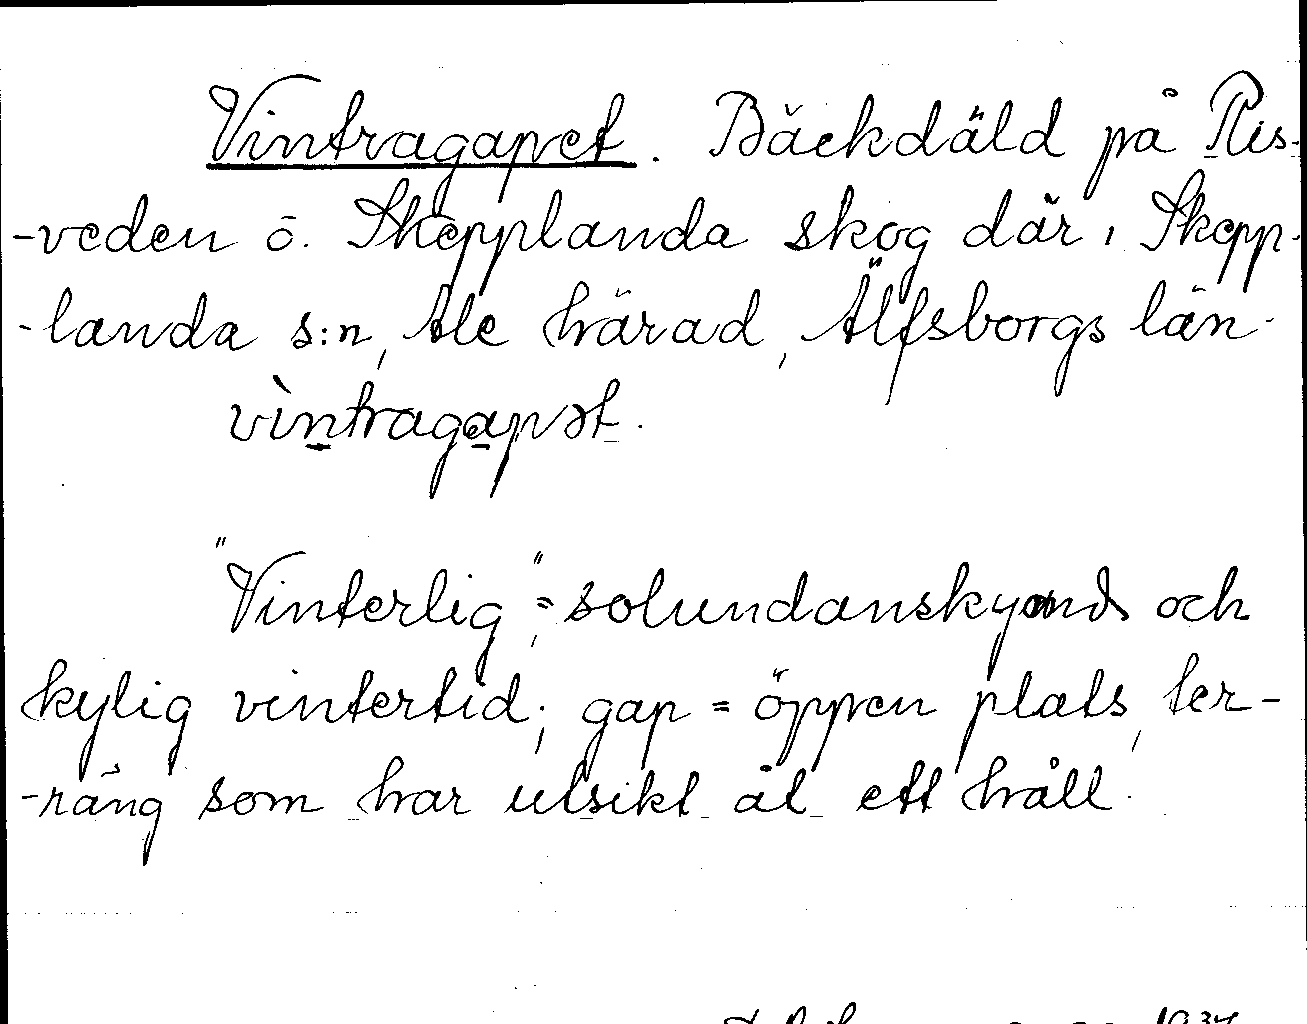 Vintragapet. Bäckdäld på Ris-
-veden ö. Skepplanda skog där i Skepp-
-landa s:n, Ale härad, Älfsborgs län.
vìntragapət.
"Vinterlig" = solundanskymd och
kylig vintertid; gap = öppen plats, ter-
-räng som har utsikt åt ett håll.